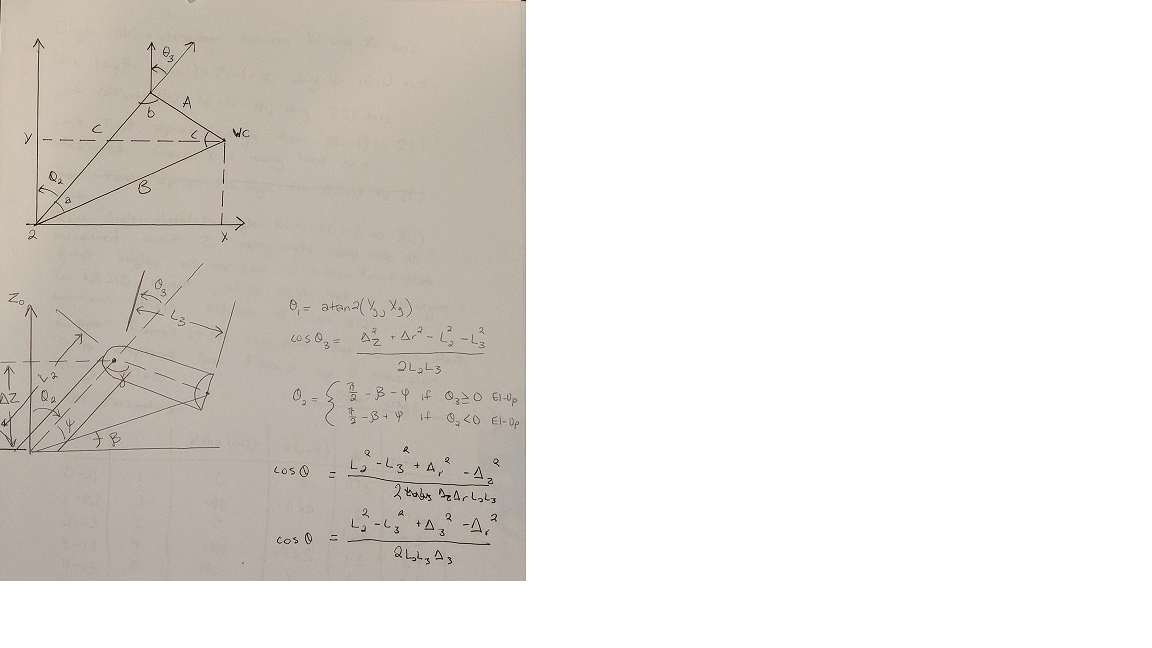 θ3
A
b
C
c
WC
y
θ2
a
B
2
X
Z0
θ3
L3
L2
θ2
γ
ΔZ
ψ
β
θ1 = atan2(Yg, Xg)
cos θ3 = ΔZ² + Δr² - L2² - L3² / 2L2L3
θ2 = { π/2 - β - ψ if θ3 ≥ 0 El-Up
π/2 - β + ψ if θ2 < 0 El-Up
cos θ = L2² - L3² + Δr² - Δz² / 2 Δz Δr L2L3
cos θ = L2² - L3² + Δ3² - Δr² / 2L2L3 Δ3